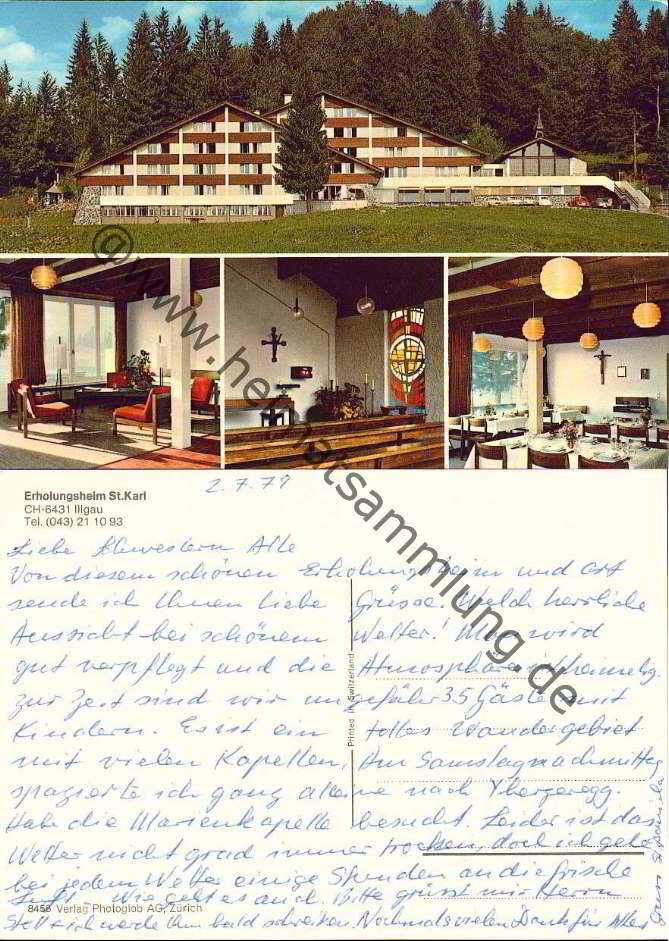 @www.heimatsammlung.de
Erholungsheim St.Karl
CH-6431 Illgau
Tel. (043) 21 10 93
2.7.79
Liebe Schwestern Alle
Von diesem schönen Erholungsheim und Ort
sende ich Ihnen liebe Grüsse. Welch herrliche
Aussicht bei schönem Wetter! Man wird
gut verpflegt und die Atmosphäre heimelig.
zur Zeit sind wir ungefähr 35 Gäste mit
Kindern. Es ist ein tolles Wandergebiet
mit vielen Kapellen, Am Samstagnachmittag
spazierte ich ganz alleine nach Ybergeregg.
Habe die Marienkapelle besucht. Leider ist das
Wetter nicht grad immer trocken, doch ich gehe
bei jedem Wetter einige Stunden an die frische
Luft. Wie geht es auch. Bitte grüsst mir Herrn
Stoll ich werde ihm bald schreiben. Nochmals vielen Dank für Alles
Printed in Switzerland
8456 Verlag Photoglob AG, Zürich